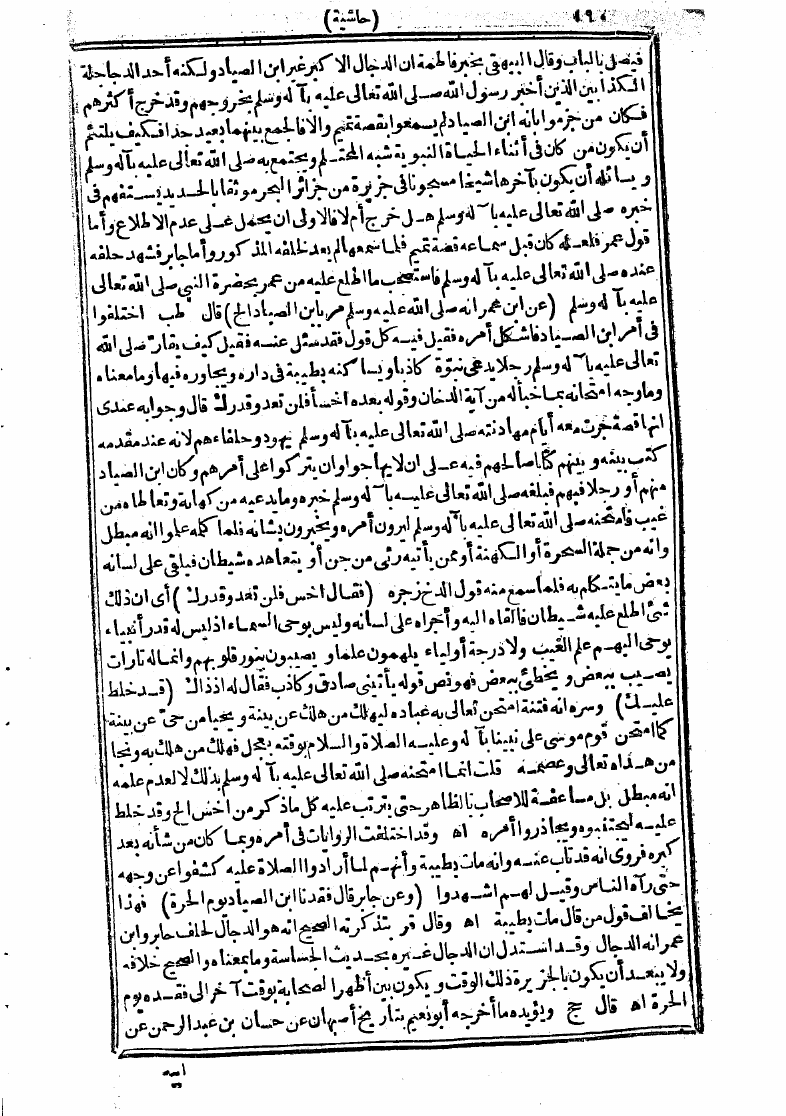 ١٩٠ (حاشية)
فيصل بالباب وقال البيهقي بخبر فاطمة ان الدجال الاكبر غير ابن الصياد ولكنه أحد الدجاجلة
الكذابين الذين أخبر رسول الله صلى الله تعالى عليه بآله وسلم بخروجهم وقد خرج أكثرهم
فكان من جزموا بانه ابن الصياد لم يسمعوا بقصة تميم والا فالجمع بينهما بعيد جدا فكيف يلتئم
أن يكون من كان في أثناء الحياة النبوية شبه المحتلم ويجتمع به صلى الله تعالى عليه بآله وسلم
ويسائله أن يكون بآخرها شيخا مسجونا في جزيرة من جزائر البحر موثقا بالحديد يستفهم في
خبره صلى الله تعالى عليه بآله وسلم هل خرج أم لا فالاولى ان يحمل على عدم الاطلاع وأما
قول عمر فلعله كان قبل سماعه قصة تميم فلما سمعها لم يعد لحلفه المذكور وأما جابر فشهد حلفه
عنده صلى الله تعالى عليه بآله وسلم فاستصحب ما اطلع عليه من عمر بحضرة النبي صلى الله تعالى
عليه بآله وسلم (عن ابن عمر انه صلى الله عليه وسلم مر بابن الصياد الخ) قال طب اختلفوا
في أمر ابن الصياد فاشكل أمره فقيل فيه كل قول فقد سئل عنه فقيل كيف يقار صلى الله
تعالى عليه بآله وسلم رجلا يدعى نبوة كاذبا ويساكنه بطيبة في داره ويجاوره فيها وما معناه
وما وجه امتحانه بما خبأ له من آية الدخان وقوله بعده اخسأ فلن تعدو قدرك قال وجوابه عندى
انها قصة جرت معه أيام مهادنته صلى الله تعالى عليه بآله وسلم يهود وحلفاءهم لانه عند مقدمه
كتب بينه وبينهم كتابا صالحهم فيه على ان لا يهاجوا وان يتركوا على أمرهم وكان ابن الصياد
منهم أو رجلا فيهم فبلغه صلى الله تعالى عليه بآله وسلم خبره وما يدعيه من كهانة وتعاطاه من
غيب فامتحنه صلى الله تعالى عليه بآله وسلم ليرون أمره ويخبرون بشانه فلما كلمه علموا انه مبطل
وانه من جملة السحرة أو الكهنة أو ممن يأتيه رئى من جن أو يتعاهده شيطان فيلقى على لسانه
بعض ما يتكلم به فلما سمع منه قول الدخ زجره (فقال اخس فلن تعدو قدرك) أى ان ذلك
شئ اطلع عليه شيطان فالقاه اليه وأجراه على لسانه وليس يوحى السماء اذ ليس له قدر أنبياء
يوحى اليهم علم الغيب ولا درجة أولياء يلهمون علما و يصيبون بنور قلوبهم وانما له تارات
يصيب ببعض و يخطئ ببعض فهو نص قوله يأتيني صادق وكاذب فقال له اذ ذاك (قد خلط
عليك) وسره انه فتنة امتحن تعالى به عباده ليهلك من هلك عن بينة و يحيا من حي عن بينة
كما امتحن قوم موسى على نبينا بآله وعليه الصلاة والسلام بوقته بعجل فهلك من هلك به ونجا
من هداه تعالى وعصمه قلت انما امتحنه صلى الله تعالى عليه بآله وسلم بذلك لا لعدم علمه
انه مبطل بل مساعفة للاصحاب بالظاهر حتى يترتب عليه كل ماذكر من اخس الخ وقد خلط
عليه ليجتنبوه ويحاذروا أمره اه وقد اختلفت الروايات في أمره وبما كان من شأنه بعد
كبره فروى انه قد تاب عنه وانه مات بطيبة وأنهم لما أرادوا الصلاة عليه كشفوا عن وجهه
حتى رآه الناس وقيل لهم اشهدوا (وعن جابر قال فقدنا ابن الصياد يوم الحرة) فهذا
يخالف قول من قال مات بطيبة اه وقال قر بتذكرته الصحيح انه هو الدجال لحلف جابر وابن
عمر انه الدجال وقد استدل ان الدجال غيره بحديث الجساسة وما بمعناه والصحيح خلافه
ولا يبعد أن يكون بالجزيرة ذلك الوقت و يكون بين أظهر الصحابة بوقت آخر الى فقده يوم
الحرة اه قال حج ويؤيده ما أخرجه أبو نعيم بتاريخ أصبهان عن حسان بن عبد الرحمن عن
ابيه